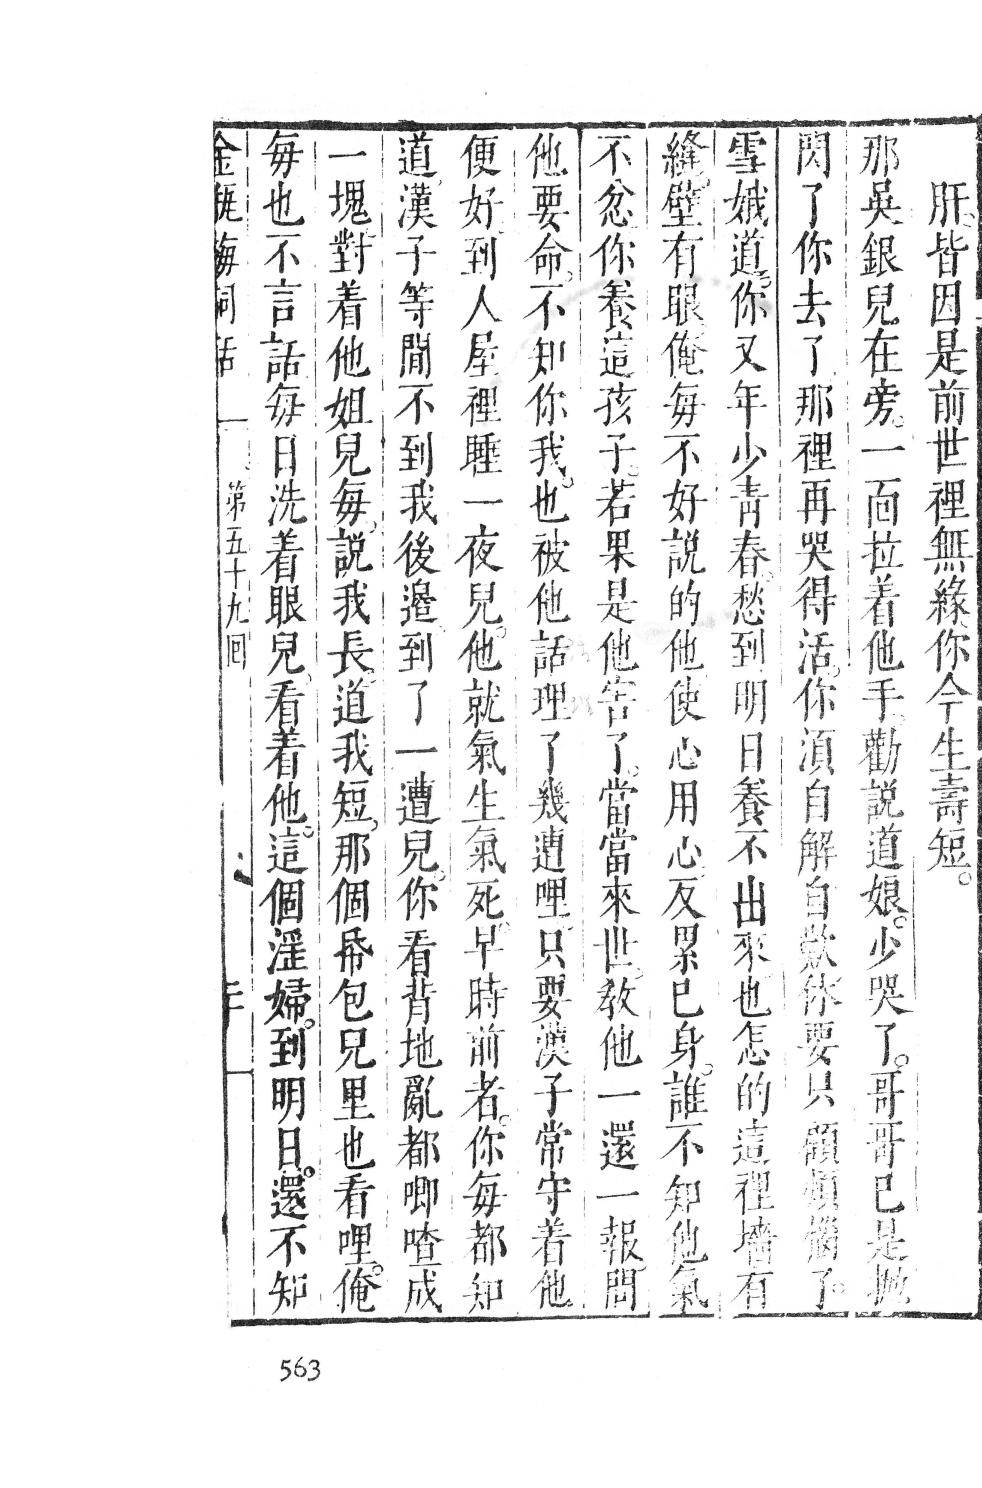 肝。皆因是前世裡無緣。你今生壽短。
那吳銀兒在旁。一面拉着他手。勸說道娘。少哭了。哥哥已是拋
閃了你去了。那裡再哭得活。你須自解自歎。休要只顧煩惱了。
雪娥道。你又年少青春。愁到明日養不出來也怎的。這裡墻有
縫。壁有眼。俺每不好說的。他使心用心。反累己身。誰不知他氣
不忿你養這孩子。若果是他害了。當當來世。教他一還一報。問
他要命。不知你我。也被他話埋了幾遭哩。只要漢子常守着他
便好。到人屋裡睡一夜兒。他就氣生氣死。早時前者。你每都知
道。漢子等閒不到我後邊。到了一遭兒。你看背地亂都唧喳成
一塊。對着他姐兒每。說我長。道我短。那個紙包兒里也看哩。俺
每也不言語。每日洗着眼兒。看着他。這個淫婦。到明日。還不知
金瓶梅詞話
第五十九回
563